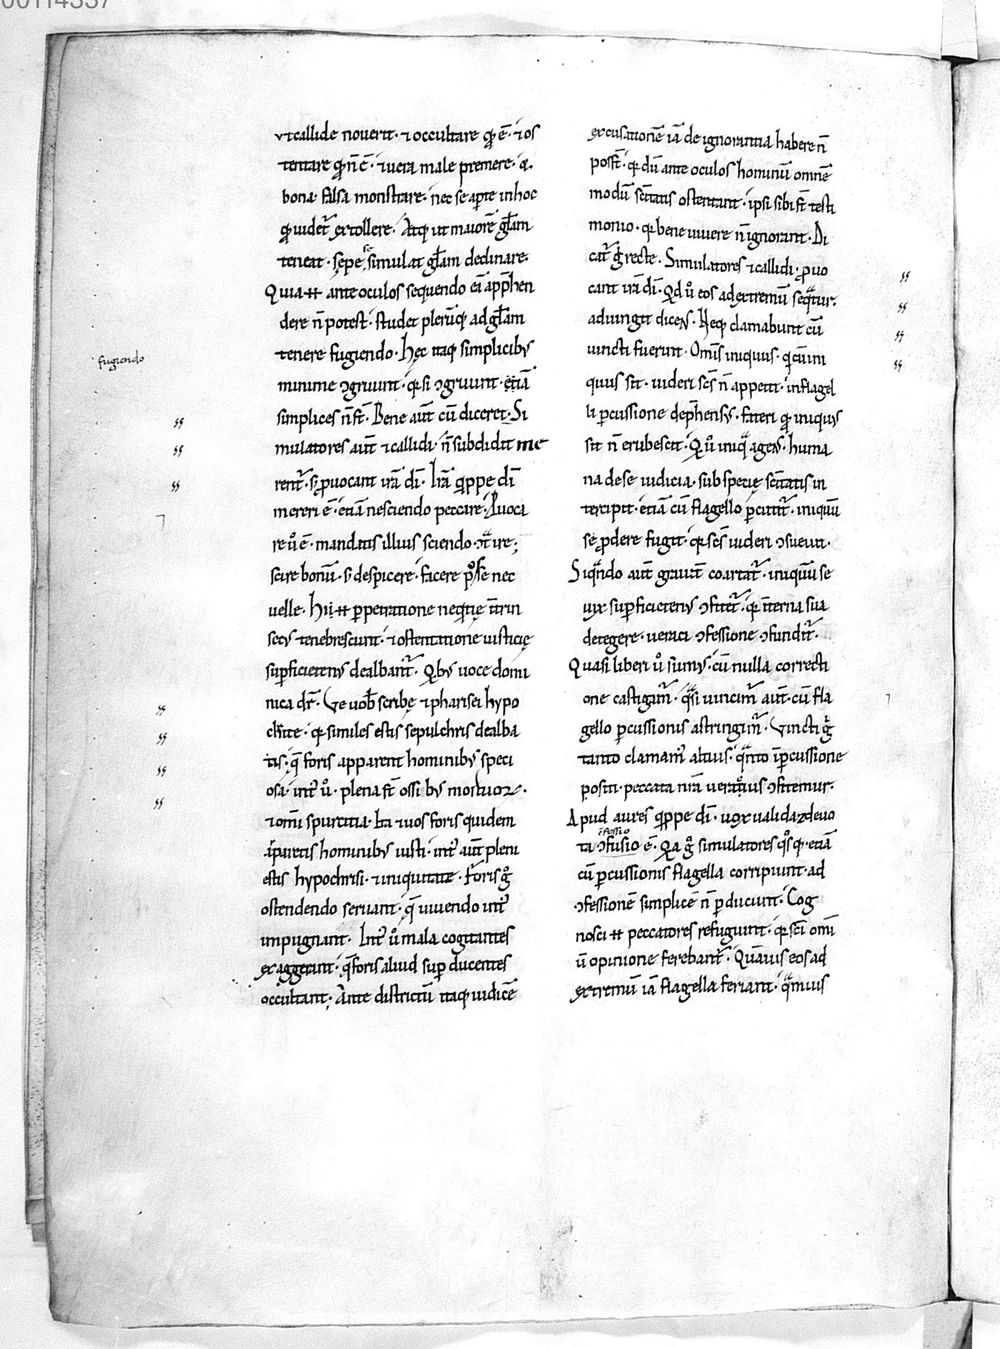 00114337
ut callide nouerit · ⁊ occultare qđ ē · ⁊ os
tentare qđ ñ ē · ⁊ uera male premere · &
bona falsa monstrare · nec se aperte in hoc
qđ uidet͛ extollere · Atq; ut maiorē gl̃am
teneat · sępe se simulat gl̃am declinare·
Quia ħ ante oculos sequendo eā app̃hen
dere ñ potest · studet plerūq; ad gl̃am
tenere fugiendo · Hęc itaq; simplicibꝰ
fugiendo
minime ↄgruunt · q̃ si ↄgruunt · etiā
simplices ñ st̃ · Bene aut̃ cū diceret · Si
mulatores aut̃ ⁊ callidi · ñ subdidit me
rent͛ · s; ꝓuocant irā dī · Irā q̃ppe dī
mereri ē · etiā nesciendo peccare · Ꝓuoca
re ů ē · mandatis illius sciendo ↄt̃ ire ·
scire bonū · s; despicere · facere posse nec
uelle · Hii ħ ꝑpetratione neq̃tię ñtrin
secꝰ tenebrescunt · ⁊ ostentatione iusticię
suꝑficietenꝰ dealbant͛ · Qbꝰ uoce domi
nica dr̃ · Ve uob̃ scribę ⁊ pharisei hypo
critę · q̃ similes estis sepulchris dealba
tis · q̃ foris apparent hominibꝰ speci
osa · int̃ ů · plena st̃ ossibꝰ mortuoꝝ ·
⁊ omī spurcitia · Ita ⁊ uos foris quidem
paretis hominibꝰ iusti · int̃ aut̃ pleni
estis hypochrisi · ⁊ iniquitate · Foris g̊
ostendendo seruant · q̃ uiuendo int̃
impugnant · Int̃ ů mala cogitantes
exaggerant · q̃ foris aliud suꝑducentes
occultant · Ante districtū itaq; iudicē
excusationē iā de ignorantia habere ñ
poss̃t · q̃ dū ante oculos hominū omnē
modū sc̃itatis ostentant · ipsi sibi st̃ testi
monio · q̃ bene uiuere ñ ignorant · Di
cat͛ g̊ recte · Simulatores ⁊ callidi · ꝓuo
cant irā dī · Qd ů eos ad extremū seq̃tur ·
adiungit dicens · Neq; clamabunt cū
uincti fuerint · Omīs iniquus · q̃ cūm
quus sit · uideri sc̃s ñ appetit · in flagel
li ꝑcussione dep̃hensꝰ · fateri qđ iniquꝰ
sit ñ erubescit · Q ů iniq̃ agens · huma
na de se iudicia · sub specię sc̃itatis in
tercipit · etiā cū flagello ꝑcutit͛ · iniquū
se ꝓdere fugit · q̃ sc̃s uideri ↄsueuit ·
Siq̃ndo aut̃ grauit̃ coartat͛ · iniquū se
uix suꝑficietenꝰ ↄfitet͛ · q̃ interna sua
detegere · ueraci ↄfessione ↄfundit͛ ·
Quasi liberi ů sumꝰ · cū nulla correcti
one castigam͛ · q̃si uincim͛ aut̃ · cū fla
gello ꝑcussionis astringim͛ · Vincti g̊
tanto clamam͛ altius · q̃nto ī ꝑcussione
positi · peccata nr̃a ueratius ↄfitemur ·
Apud aures q̃ppe dī · uox ualida deuo
ↄfessio
ta ↄfusio ē · Qa g̊ simulatores q̃sq; · etiā
cū ꝑcussionis flagella corripiunt · ad
ↄfessionē simplicē ñ ꝑducunt · Cog
nosci ħ peccatores refugiunt · q̃ sc̃i omī
ū opinione ferebant͛ · Quāuis eos ad
extremū iā flagella feriant · q̃muis